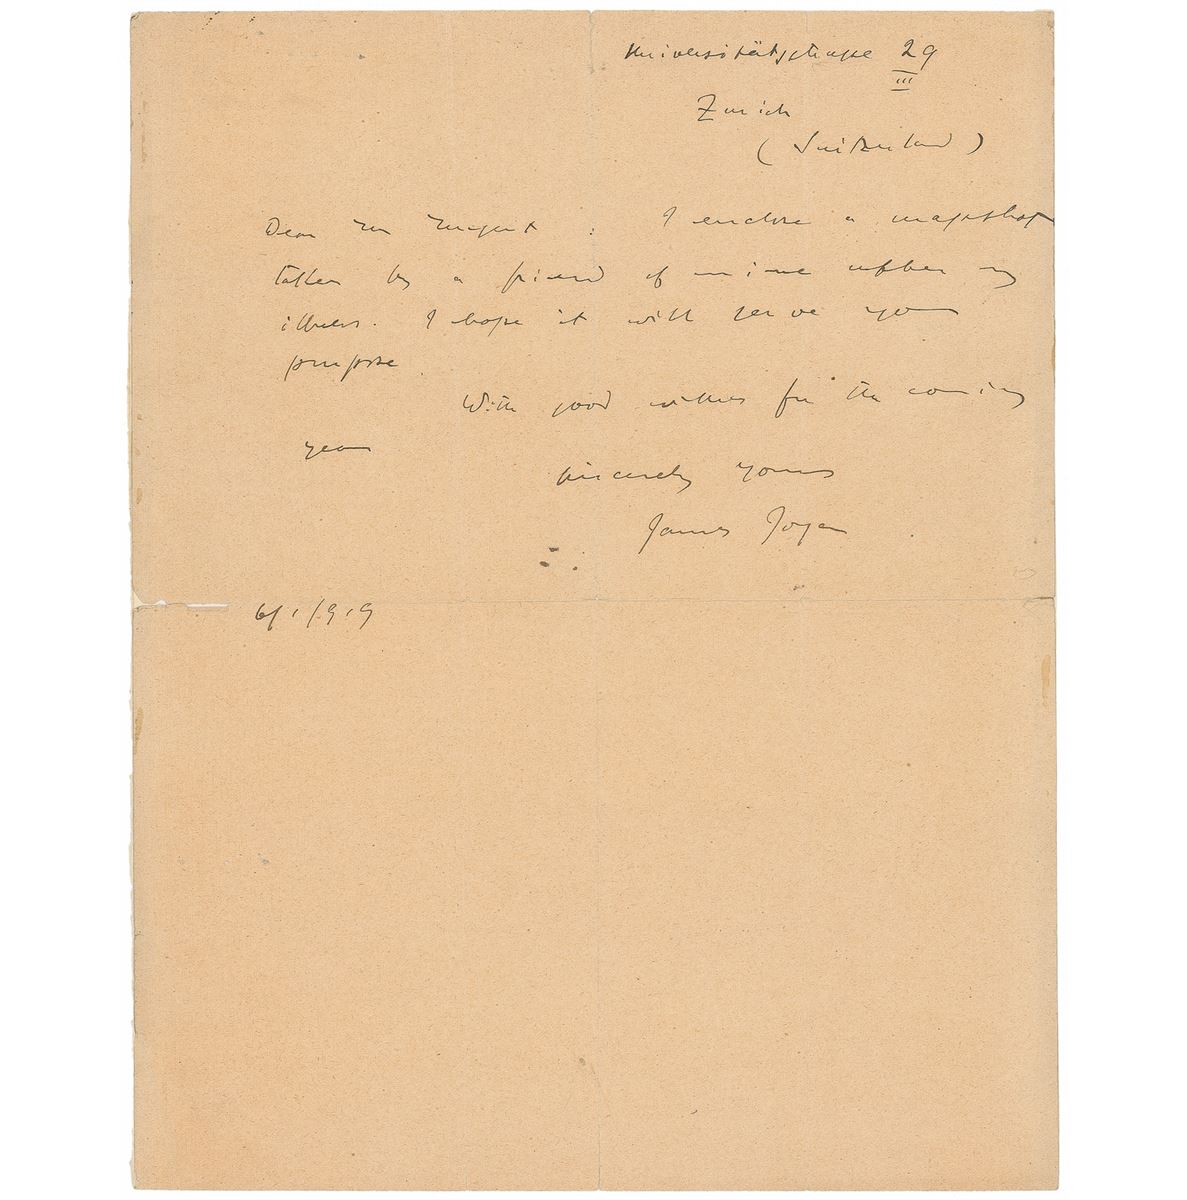 Universitätstrasse 29
III
Zurich
(Switzerland)
Dear Mr : I enclose a snapshot
taken by a friend of mine after my
illness. I hope it will serve your
purpose.
With good wishes for the coming
year
sincerely yours
James Joyce
6/1/1919